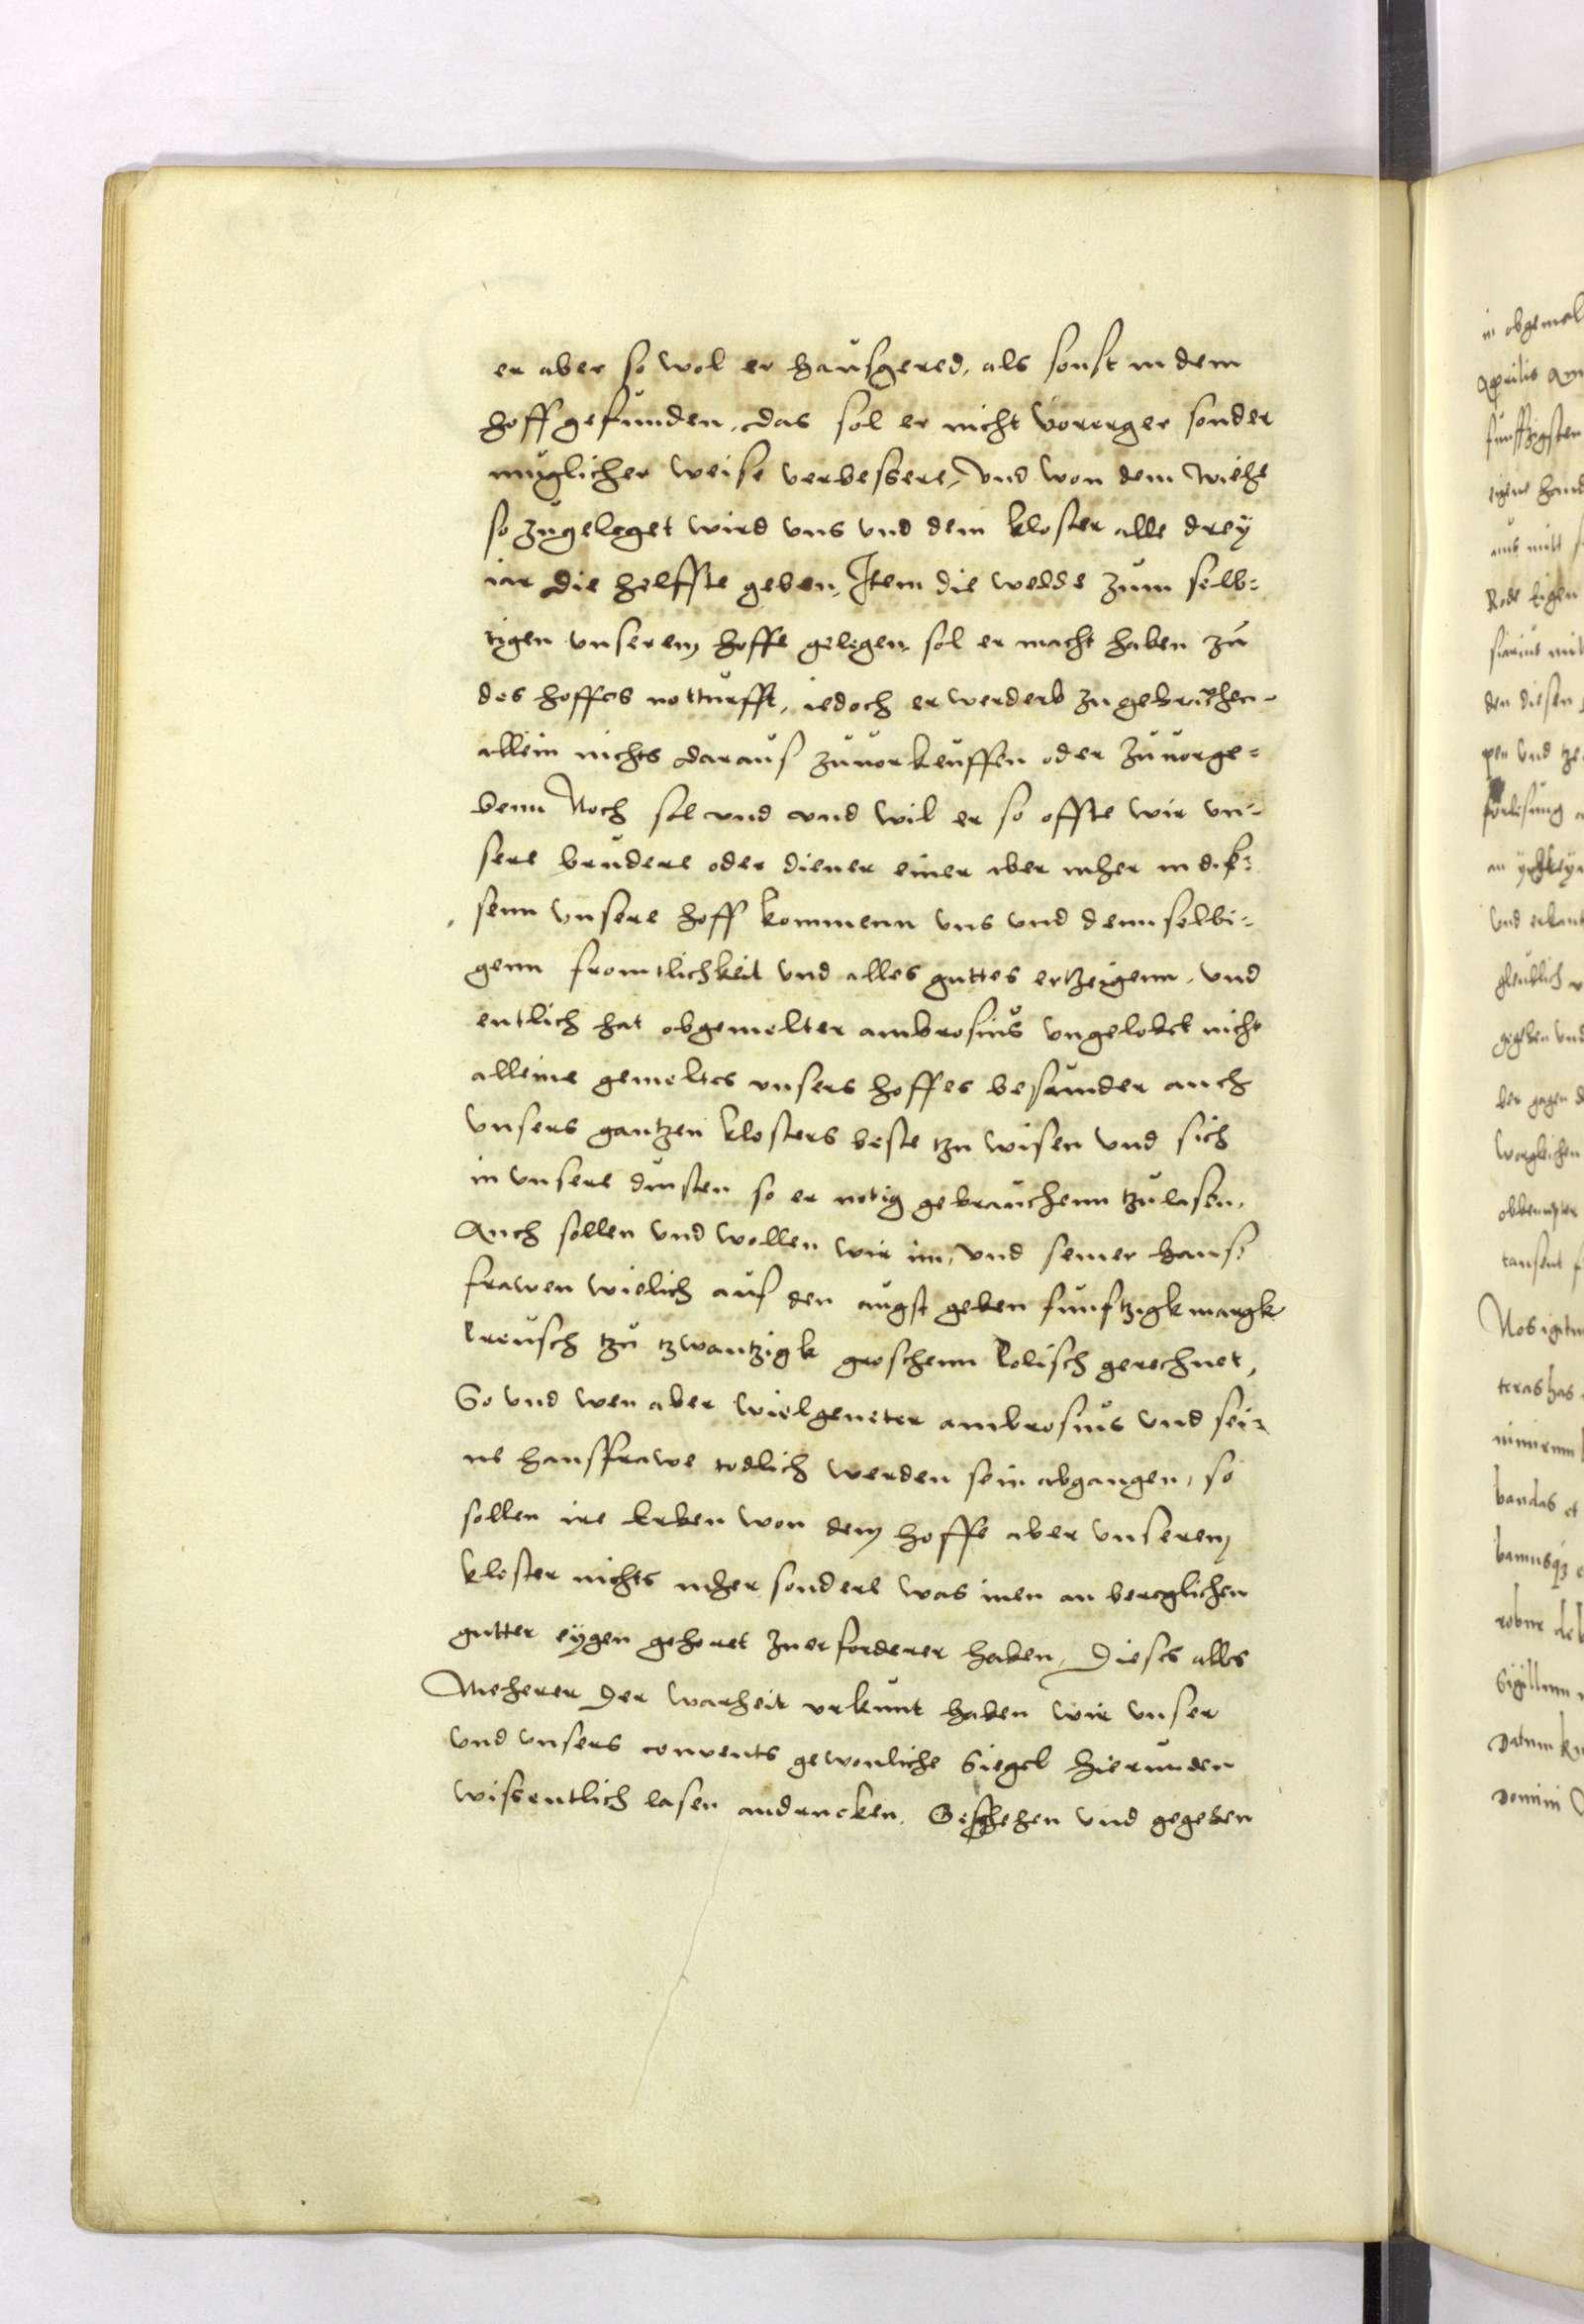 er aber so wol er hausgered, als sonst in dem
hoff gefunden, das sol er nicht vorerger sonder
muglicher weise verbessere, vnd von dem viehe
so zugeleget wird vns vnd dem kloster alle drey
iar die helffte geben, Item die welde zum selb-
tigen vnserem hoffe gelegen, sol er macht haben zu
des hoffes notturfft, iedoch er werderb zu gebruchen
allein nichts daraus zuuorkeuffen oder zuuorge-
benn Noch sol vnd vnd wil er so offte wir vn-
sere brudere oder diener einer aber meher in die-
senn vnsere hoff kommenn vns vnd dennselbi-
genn fromtlichkeit vnd alles guttes ertzeigenn, vnd
entlich hat obgemelter ambrosius vngelobet nicht
alleine gemeltes vnsers hoffes besunder auch
vnsers gantzen klosters beste tzu wisen vnd sich
in vnsere dinsten so er notig gebrauchenn tzu lasen,
Auch sollen vnd wollen wir im, vnd seiner haus
frawen wielich auf den augst geben funftzigk margk
Preusch tzu tzwantzigk groschenn Polisch gerechnet,
So vnd wen aber wielgeneter ambrosius vnd sei-
ne hausfrawe todlich werden sein abgangen, so
sollen ire Erben won dem hoffe aber vnserem
kloster nichts meher sondere was inen an bereglichen
gutter eygen gehoret zuerforderer haben, Dieses alles
Meherer Der warheit vrkunt haben wir vnser
vnd vnsers convents gewonliche Siegel hierunden
wissentlich lasen andrucken. Geschehen vnd gegeben